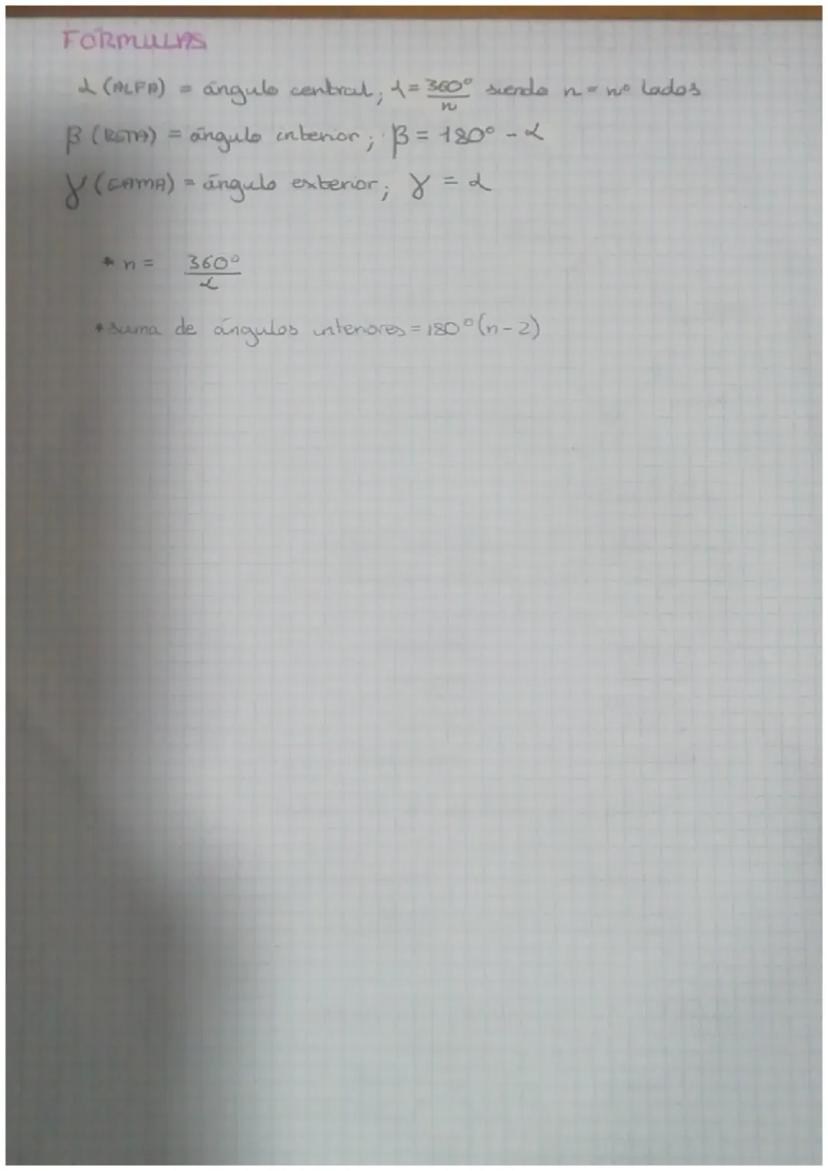 FORMULAS
α (ALFA) = ángulo central; α = 360°/n siendo n = nº lados
β (BETA) = ángulo interior; β = 180° - α
γ (GAMA) = ángulo exterior; γ = α
* n = 360°/α
* suma de ángulos interiores = 180° (n-2)